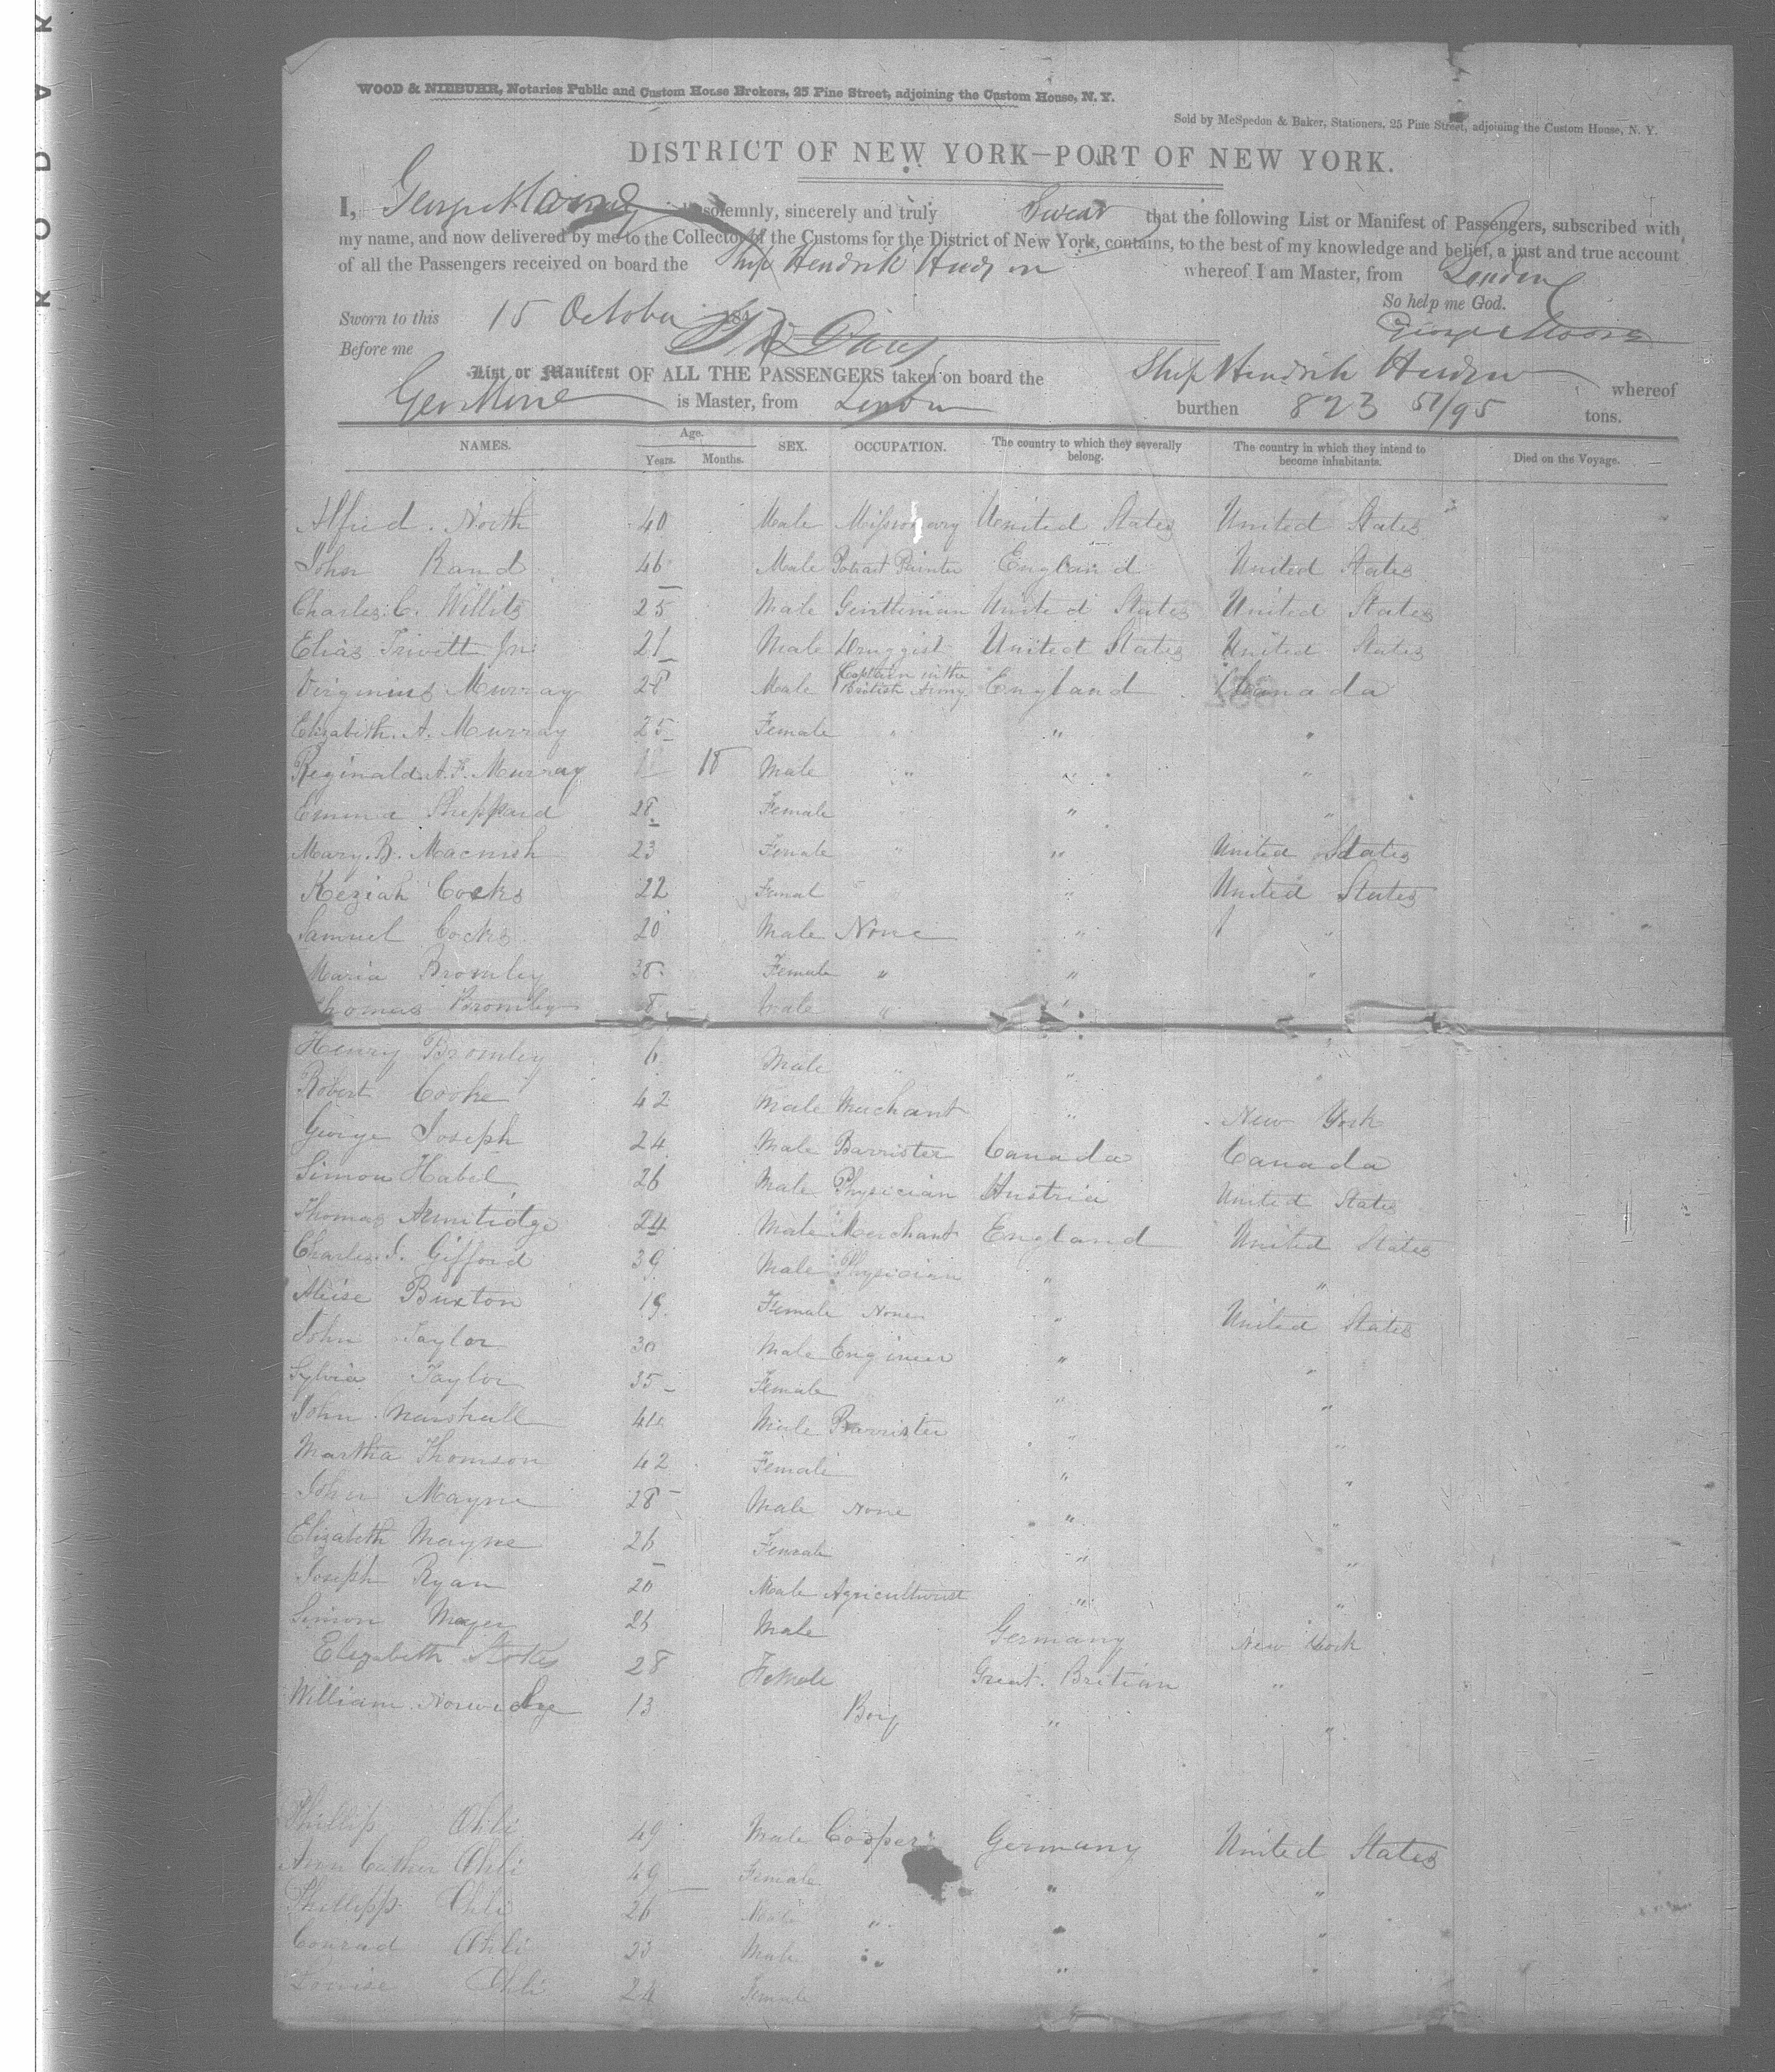 KODAK
WOOD & NIEBUHR, Notaries Public and Custom House Brokers, 25 Pine Street, adjoining the Custom House, N. Y.
Sold by McSpedon & Baker, Stationers, 25 Pine Street, adjoining the Custom House, N. Y.
DISTRICT OF NEW YORK—PORT OF NEW YORK.
I, George Moore do solemnly, sincerely and truly Swear that the following List or Manifest of Passengers, subscribed with
my name, and now delivered by me to the Collector of the Customs for the District of New York, contains, to the best of my knowledge and belief, a just and true account
of all the Passengers received on board the Ship Hendrik Hudson whereof I am Master, from London
So help me God.
Sworn to this 15 October 184 George Moore
Before me
List or Manifest OF ALL THE PASSENGERS taken on board the Ship Hendrik Hudson whereof
Geo Moore is Master, from London burthen 823 51/95 tons.
NAMES. Age. Years. Months. SEX. OCCUPATION. The country to which they severally belong. The country in which they intend to become inhabitants. Died on the Voyage.
Alfred North 40 Male Missionary United States United States
John Rand 46 Male Potrait Painter England United States
Charles C. Willits 25 Male Gentleman United States United States
Elias Trivett Jnr 21 Male Druggist United States United States
Virginius Murray 28 Male Captain in the British Army England Canada
Elizabeth A. Murray 25 Female " " "
Reginald A. F. Murray 18 Male " " "
Emma Sheppard 28 Female " "
Mary B. Macnish 23 Female " " United States
Keziah Cocks 22 Femal " " United States
Samuel Cocks 20 Male None " "
Maria Bromley 38 Female " " "
Thomas Bromley 8 Male " "
Henry Bromley 6 Male " " "
Robert Cooke 42 Male Merchant " New York
George Joseph 24 Male Barrister Canada Canada
Simon Habel 26 Male Physician Austria United States
Thomas Armitidge 24 Male Merchant England United States
Charles Gifford 39 Male Physician " "
Buxton 19 Female None " United States
John Taylor 30 Male Engineer " "
Sylvia Taylor 35 Female " "
John Marshall Male Barrister " "
Martha Thomson 42 Female " "
John Mayne 28 Male None " "
Elizabeth Mayne 26 Female " "
Joseph Ryan 20 Male Agriculturist " "
Simon Mayer 26 Male Germany New York
Elizabeth Stokes 28 Female Great Britian "
William Norwidge 13 Boy " "
Phillip Ohli 49 Male Cooper Germany United States
Ann Cather Ohli 49 Female " "
Phillipp Ohli 26 Male " " "
Conrad Ohli 23 Male " " "
Louise Ohli 24 Female